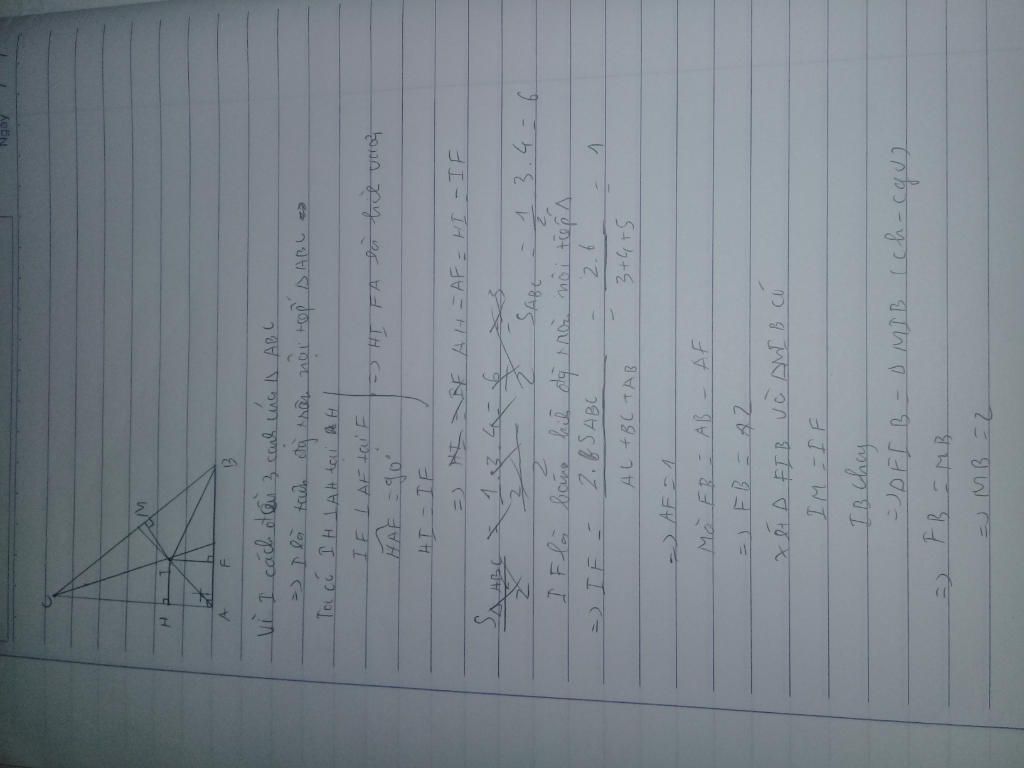 Ngày
C
M
H
I
A
F
B
Vì I cách đều 3 cạnh của Δ ABC
=> I là tâm đg tròn nội tiếp Δ ABC =>
Ta có IH ⊥ AH tại H
IF ⊥ AF tại F
HAF = 90°
HI = IF
=> HIFA là hình vuông
=> AH = AF = HI = IF
S ABC = 1/2 3.4 = 6
IF là bán kính đg tròn nội tiếp Δ
=> IF = 2.S ABC / AC + BC + AB = 2.6 / 3+4+5 = 1
=> AF = 1
Mà FB = AB - AF
=> FB = 2
Xét Δ FIB và Δ MIB có
IM = IF
IB chung
=> Δ FIB = Δ MIB (ch - cgv)
=> FB = MB
=> MB = 2